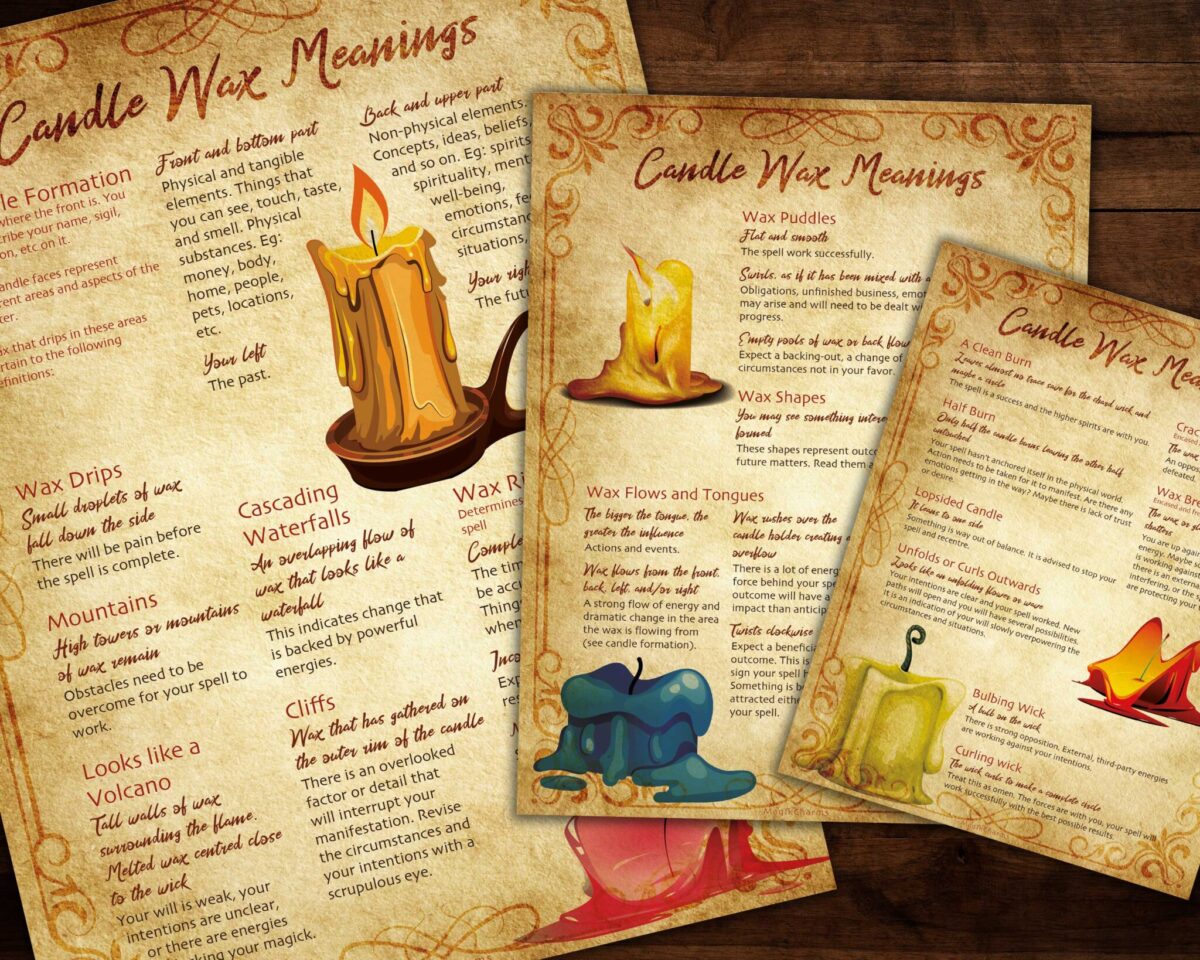 Candle Wax Meanings
Formation
where the front is. You
your name, sigil,
etc on it.
faces represent
areas and aspects of the
that drips in these areas
to the following
Front and bottom part
Physical and tangible
elements. Things that
you can see, touch, taste,
and smell. Physical
substances. Eg:
money, body,
home, people,
pets, locations,
etc.
Your left
The past.
Back and upper part
Non-physical elements.
Concepts, ideas, beliefs,
and so on. Eg: spirits,
spirituality,
well-being,
emotions,
situations,
Your
The
Wax Drips
Small droplets of wax
fall down the side
There will be pain before
the spell is complete.
Mountains
High towers or mountains
of wax remain
Obstacles need to be
overcome for your spell to
work.
Looks like a
Volcano
Tall walls of wax
surrounding the flame.
Melted wax centred close
to the wick
Your will is weak, your
intentions are unclear,
or there are energies
your magick.
Cascading
Waterfalls
An overlapping flow of
wax that looks like a
waterfall
This indicates change that
is backed by powerful
energies.
Cliffs
Wax that has gathered on
the outer rim of the candle
There is an overlooked
factor or detail that
will interrupt your
manifestation. Revise
the circumstances and
your intentions with a
scrupulous eye.
Wax
Determines
spell
The
be
when
Candle Wax Meanings
Wax Puddles
Flat and smooth
The spell work successfully.
Swirls, as if it has been mixed with a
Obligations, unfinished business,
may arise and will need to be dealt
progress.
Empty pools of wax or back flow
Expect a backing-out, a change of
circumstances not in your favor.
Wax Shapes
You may see something
formed
These shapes represent
future matters. Read them
Wax Flows and Tongues
The bigger the tongue, the
greater the influence
Actions and events.
Wax flows from the front,
back, left, and/or right
A strong flow of energy and
dramatic change in the area
the wax is flowing from
(see candle formation).
Wax rushes over the
candle holder creating
overflow
There is a lot of
force behind your
outcome will have a
impact than
Twists clockwise
Expect a
outcome. This is
sign your spell
Something is
attracted
your spell.
MagikCharms
Candle Wax
A Clean Burn
Leaves almost no trace save for the chard wick and
maybe a circle
The spell is a success and the higher spirits are with you.
Half Burn
Only half the candle burns leaving the other half
untouched
Your spell hasn't anchored itself in the physical world.
Action needs to be taken for it to manifest. Are there any
emotions getting in the way? Maybe there is lack of trust
or desire.
Lopsided Candle
It leans to one side
Something is way out of balance. It is advised to stop your
spell and recentre.
Unfolds or Curls Outwards
Looks like an unfolding flower or wave
Your intentions are clear and your spell worked. New
paths will open and you will have several possibilities.
It is an indication of your will slowly overpowering the
circumstances and situations.
Encased
The wax
An
defeated.
Wax
Encased and
The wax
shatters
You are up
energy. Maybe
is working
there is an
interfering, or the
are protecting your
Bulbing Wick
A ball on the wick
There is strong opposition. External, third-party energies
are working against your intentions.
Curling wick
The wick curls to make a complete circle
Treat this as omen. The forces are with you, your spell will
work successfully with the best possible results.
MagikCharms